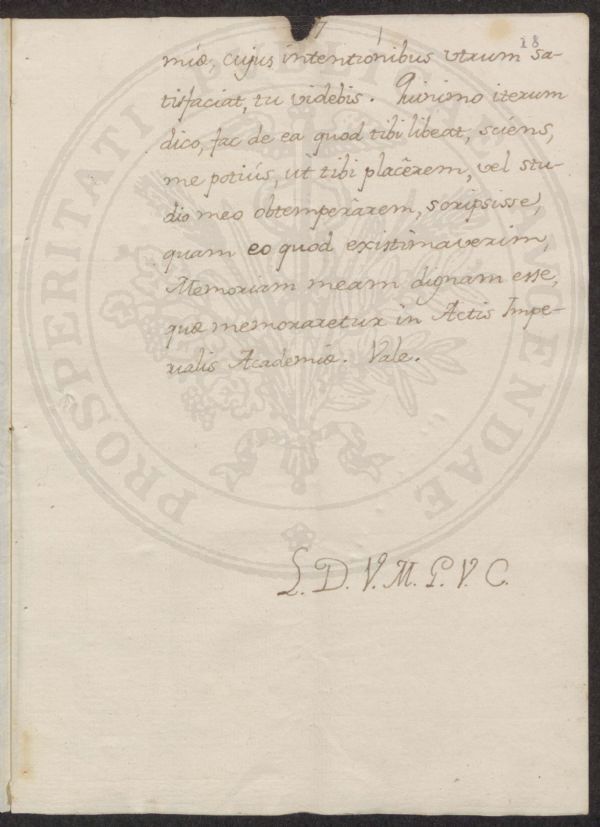 7
18
miæ, cujus intentionibus utrum sa-
tisfaciat, tu videbis. Quinimo iterum
dico, fac de ea quod tibi libeat, sciens,
me potiùs, ut tibi placêrem, vel stu-
dio meo obtemperârem, scripsisse,
quam eo quod existimaverim,
Memoriam meam dignam esse,
quæ memoraretur in Actis Impe-
rialis Academiæ. Vale.
L. D. V. M. P. V. C.
PROSPERITATI PUBLICAE AUGENDAE